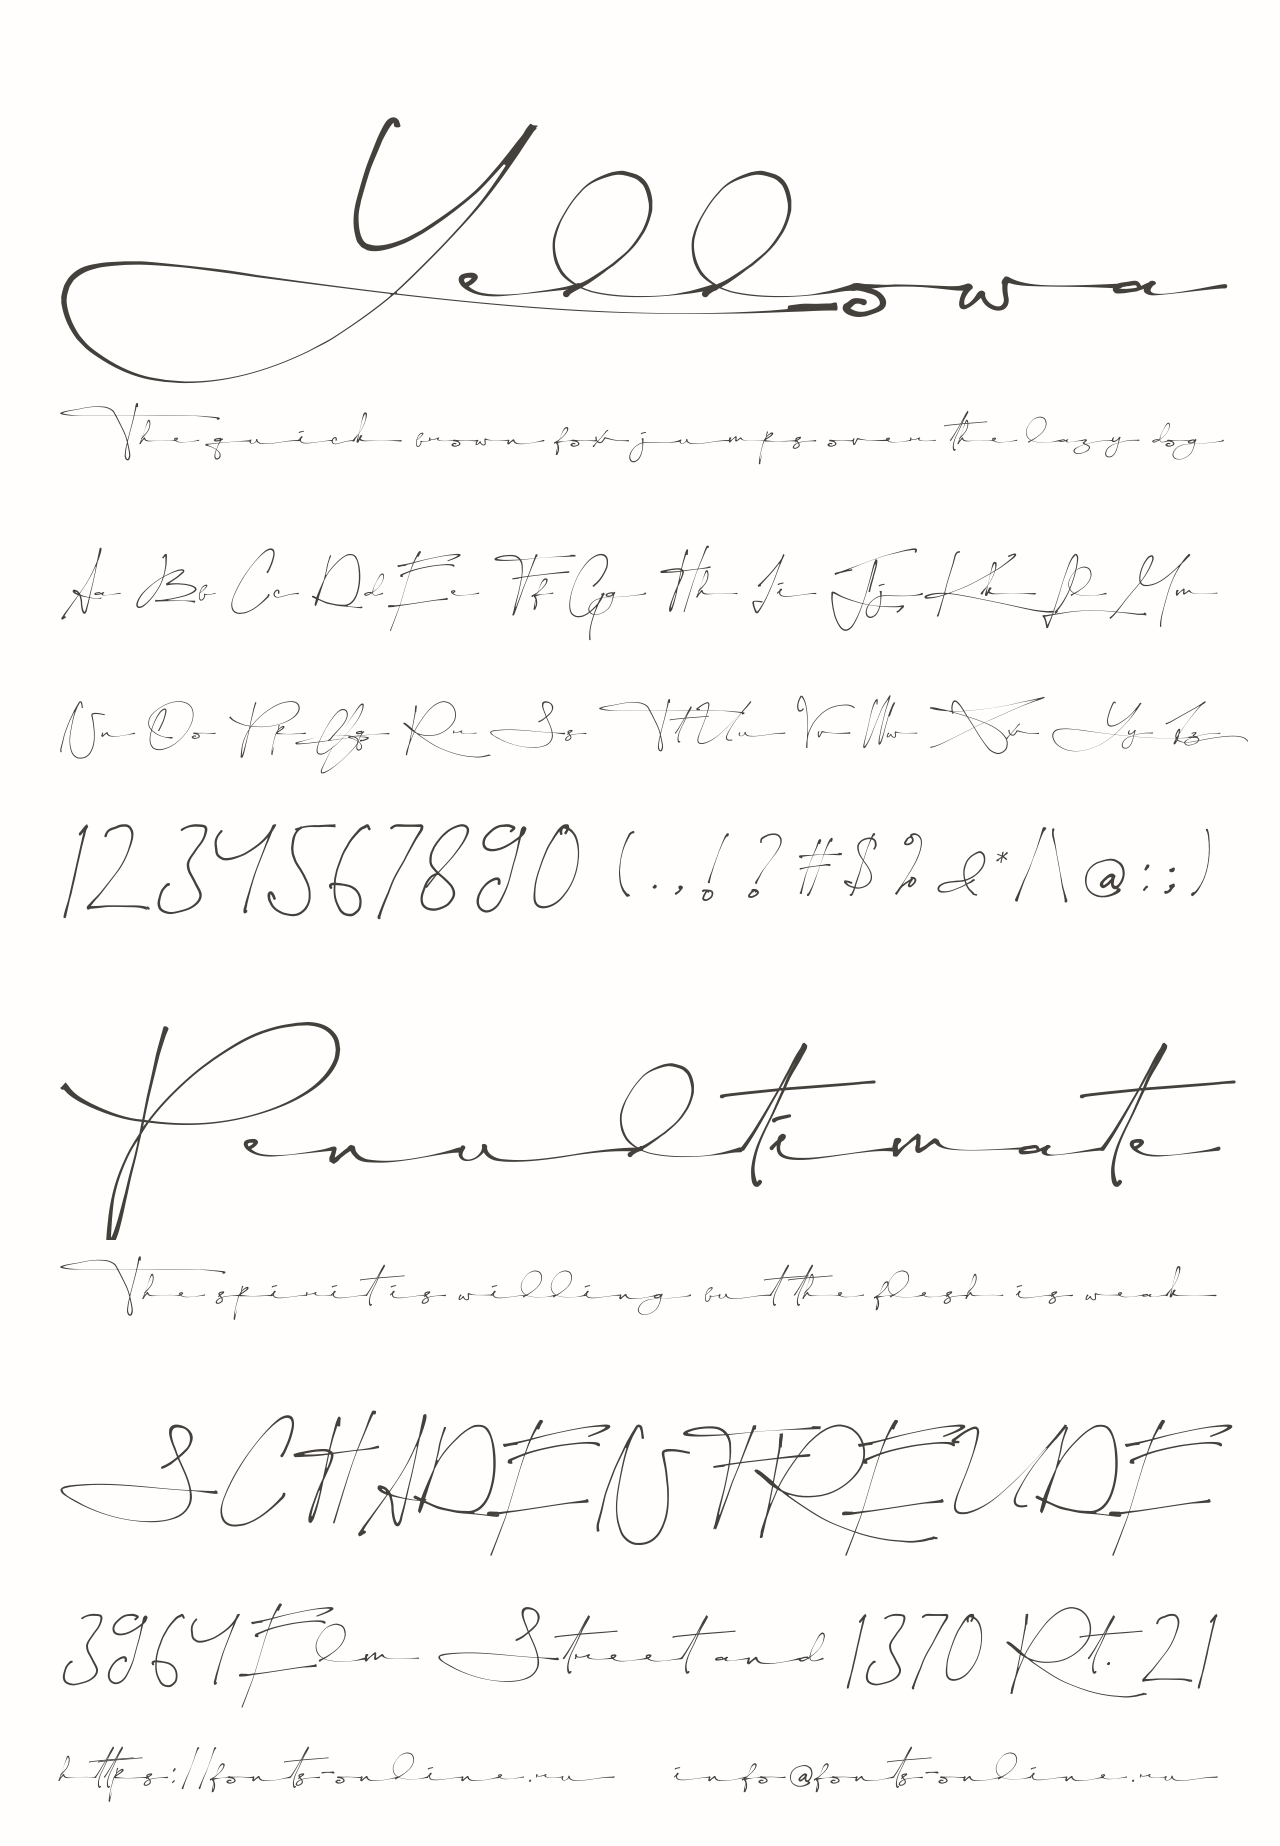 Yellowa
The quick brown fox jumps over the lazy dog
Aa Bb Cc Dd Ee Ff Gg Hh Ii Jj Kk Ll Mm
Nn Oo Pp Qq Rr Ss Tt Uu Vv Ww Xx Yy Zz
1234567890 (.,!?#$%&*/\@:;)
Penultimate
The spirit is willing but the flesh is weak
SCHADENFREUDE
3964 Elm Street and 1370 Rt. 21
https://fonts-online.ru info@fonts-online.ru